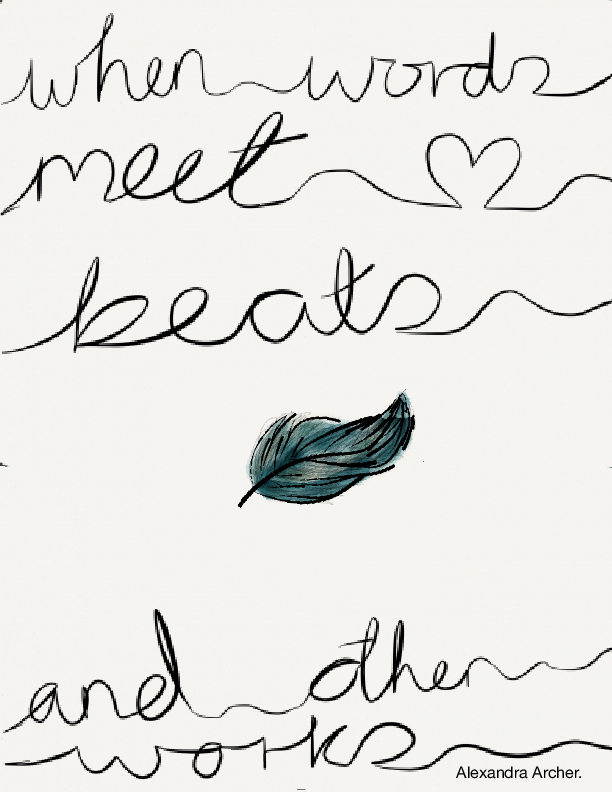 when words
meet
beats
and other
works
Alexandra Archer.